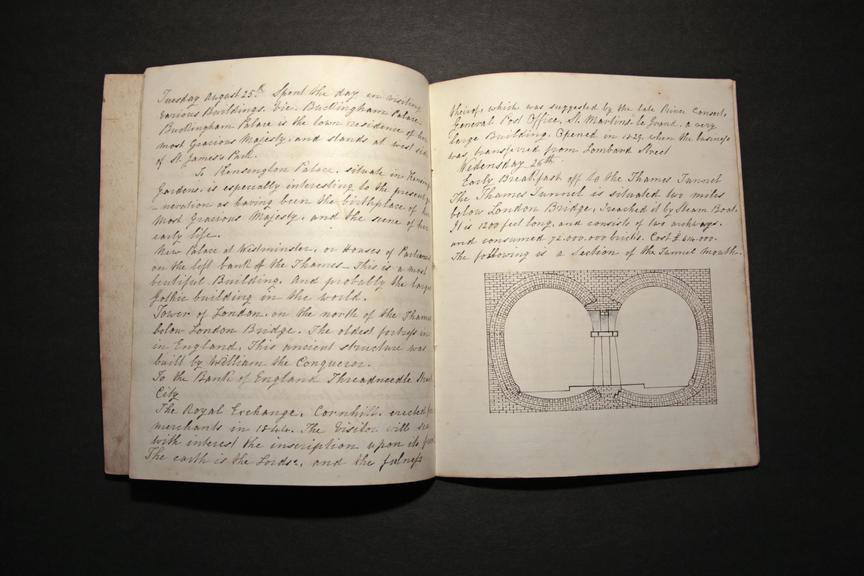 Tuesday August 25th Spent the day in visiting
various Buildings. Viz. Buckingham Palace.
Buckingham Palace is the town residence of her
most Gracious Majesty, and stands at west side
of St James's Park.
To Kensington Palace, situate in Kensing
Gardens, is especially interesting to the present ge
-neration as having been the birthplace of her
Most Gracious Majesty, and the scene of her
early life.
New Palace at Westminster, or Houses of Parliament
on the left bank of the Thames - This is a most
beutiful Building. And probably the largest
Gothic building in the world.
Tower of London, on the north of the Thames
below London Bridge. The oldest fortress
in England. This ancient structure was
built by William the Conqueror.
To the Bank of England Threadneedle Street
City
The Royal Exchange, Cornhill, erected for
merchants in 1844. The Visitor will see
with interest the inscription upon its front
The earth is the Lords, and the fulness
thereof, which was suggested by the late Prince Consort,
General Post Office, St. Martins le Grand, a very
large Building. Opened in 1829. when the business
was transferred from Lombard Street
Wedensday 26th
Early Breakfast off to the Thames Tunnel
The Thames Tunnel is situated two miles
below London Bridge, reached it by Steam Boat.
It is 1200 feet long, and consists of two archways.
and consumed bricks. Cost £ 614.000.
The following is a Section of the Tunnel Mouth.